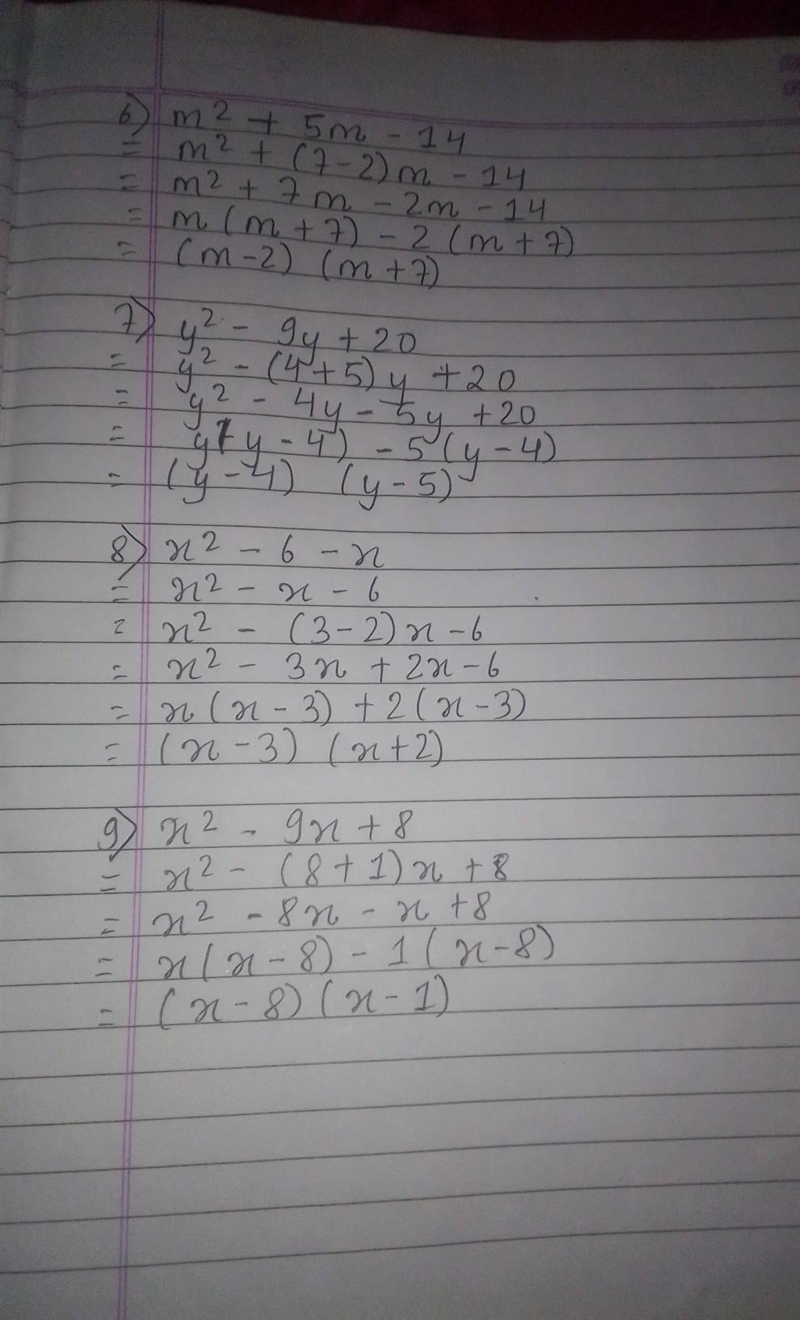 6) m² + 5m - 14
= m² + (7-2)m - 14
= m² + 7m - 2m - 14
= m(m+7) - 2(m+7)
= (m-2) (m+7)
7) y² - 9y + 20
= y² - (4+5)y + 20
= y² - 4y - 5y + 20
= y(y-4) - 5(y-4)
= (y-4) (y-5)
8) x² - 6 - x
= x² - x - 6
= x² - (3-2)x - 6
= x² - 3x + 2x - 6
= x(x-3) + 2(x-3)
= (x-3) (x+2)
9) x² - 9x + 8
= x² - (8+1)x + 8
= x² - 8x - x + 8
= x(x-8) - 1(x-8)
= (x-8)(x-1)